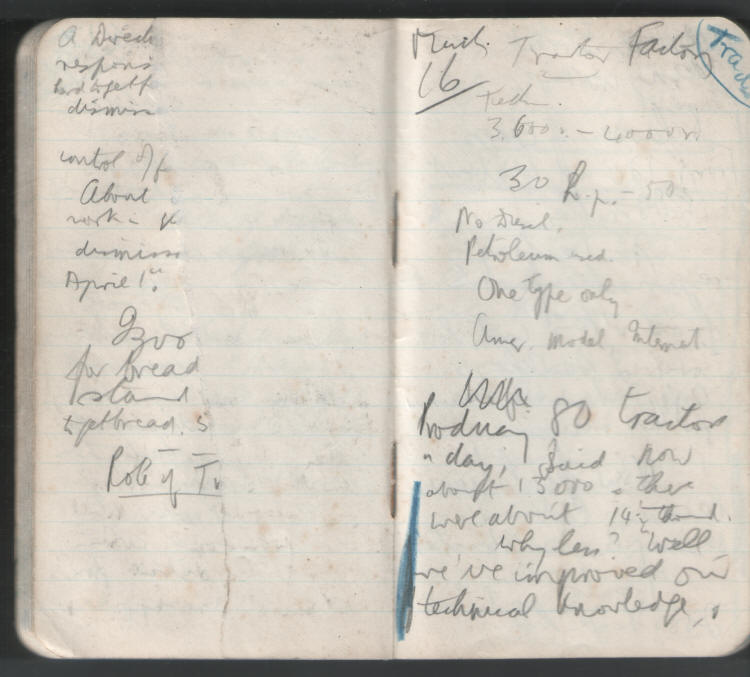 A Direct
respons
hard to get
dismiss
control of
About
work
dismiss
April 1st.
for bread
stand
to get bread. 5
Role of T
March. Tractor Factory
16
Tech.
3,600 r. - 4000 r
30 R. p. - 50
No Diesel.
Petroleum used.
One Type only
Amer. model, Internat
Producing 80 tractors
a day, Said now
about 15000. there
were about 14 thand.
why less? Well
we've improved our
technical knowledge,